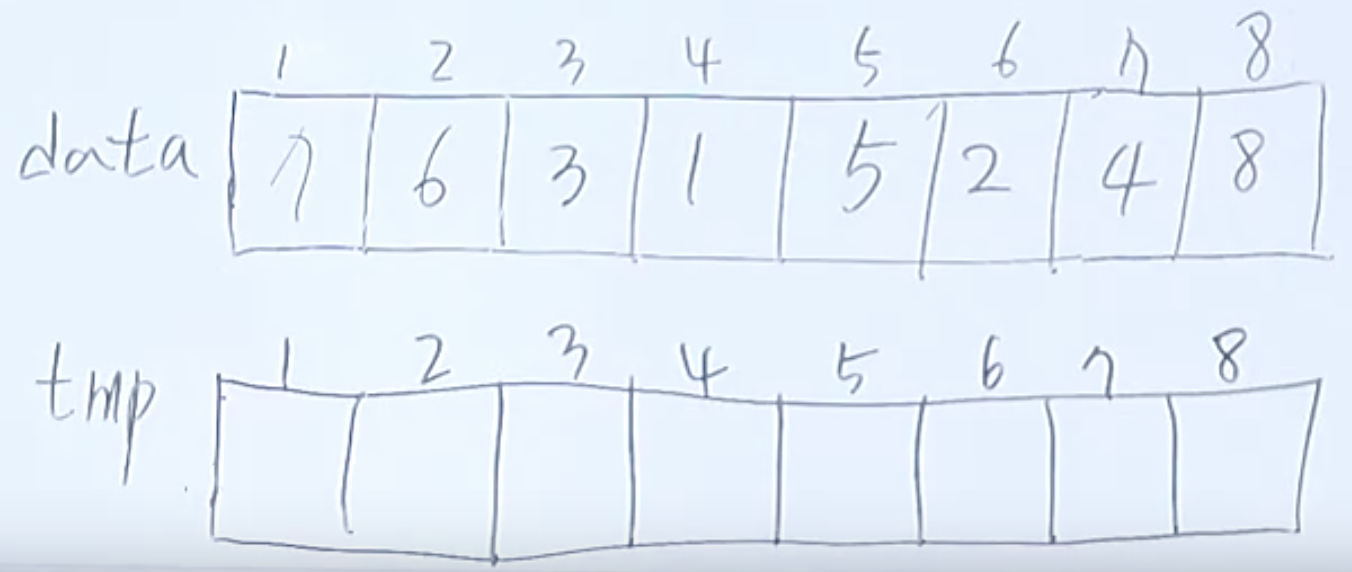 1 2 3 4 5 6 7 8
data 7 6 3 1 5 2 4 8
1 2 3 4 5 6 7 8
tmp